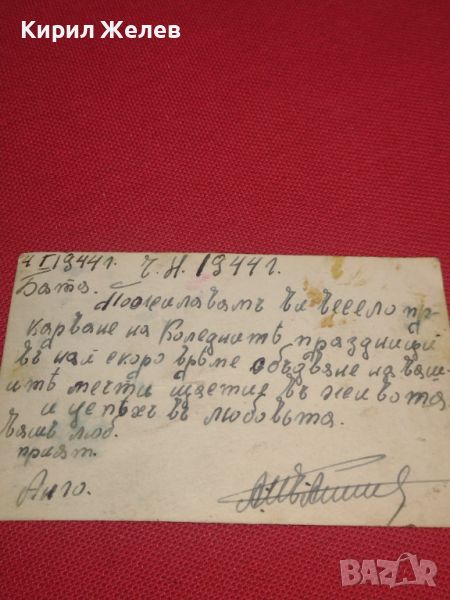 Кирил Желев
4 I 1944 г. Ч. Н. 1944 г.
Бата.
Пожилавамъ ви весело пр-
карване на Коледнитѣ празднищи
въ най скоро врѣме сбѫдване на ваши-
итѣ мечти щастие въ живота
и успѣхъ въ любовьта.
Вашъ люб.
прият.
Анго.
BAZAR